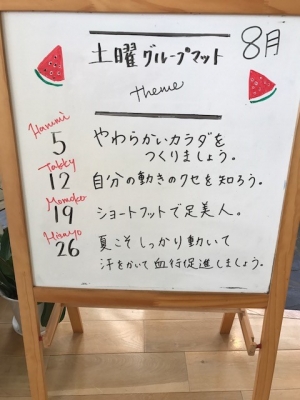 8月
土曜グループマット
theme
Harumi
5 やわらかいカラダを
つくりましょう。
Tabby
12 自分の動きのクセを知ろう。
Momoko
19 ショートフットで足美人。
Hisayo
26 夏こそしっかり動いて
汗をかいて血行促進しましょう。